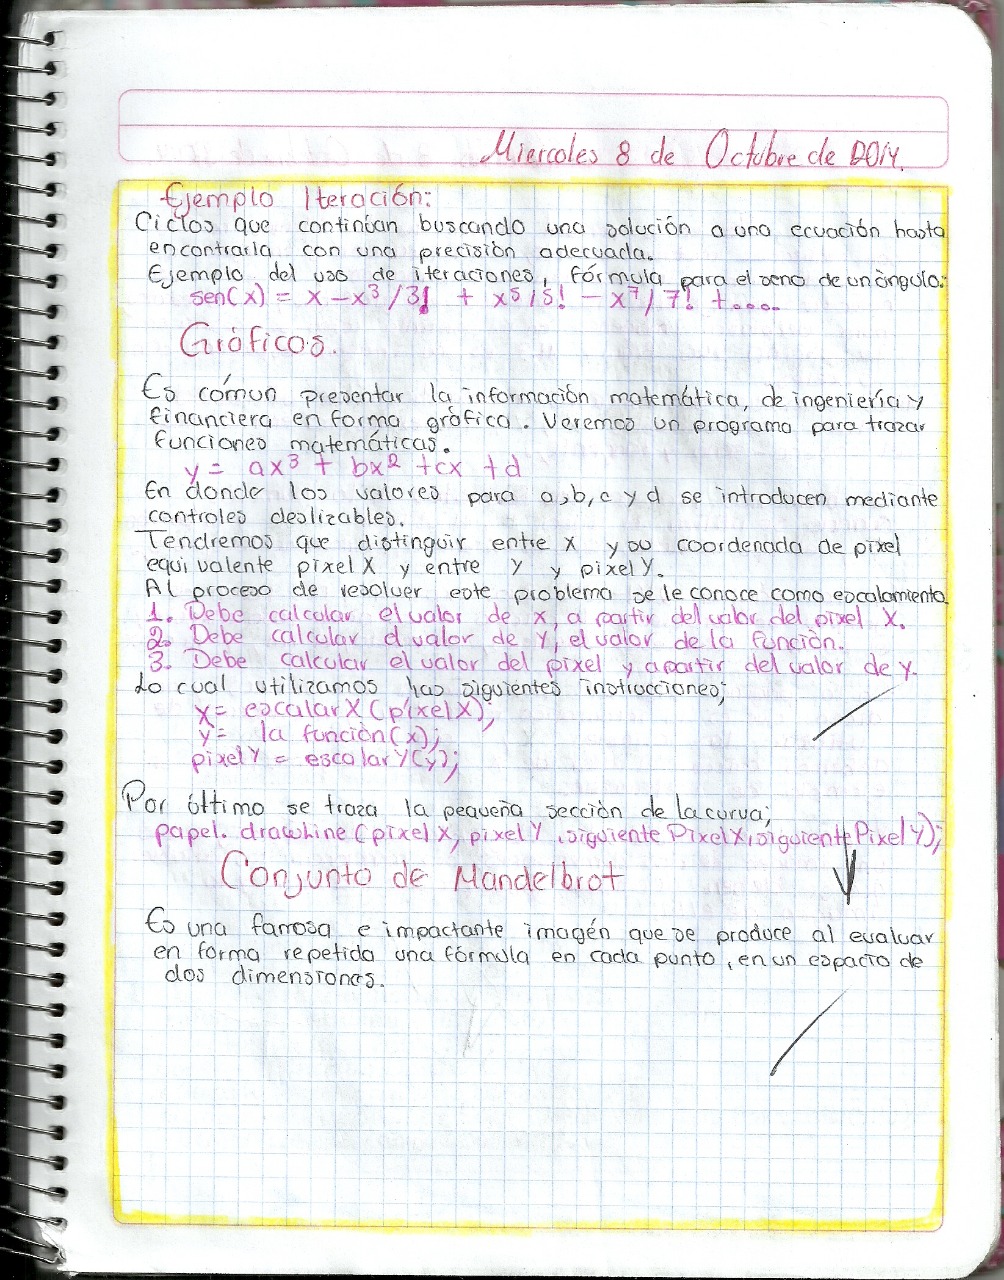 Miercoles 8 de Octubre de 2014.
Ejemplo Iteración:
Ciclos que continúan buscando una solución a una ecuación hasta
encontrarla, con una precisión adecuada.
Ejemplo del uso de iteraciones, fórmula para el seno de un ángulo:
sen(x) = x - x³/3! + x⁵/5! - x⁷/7! + .....
Gráficos.
Es cómun presentar la información matemática, de ingeniería y
financiera en forma gráfica. Veremos un programa para trazar
funciones matemáticas.
y = ax³ + bx² + cx + d
En donde los valores para a, b, c y d se introducen mediante
controles deslizables.
Tendremos que distinguir entre x y su coordenada de pixel
equivalente pixel X y entre Y y pixel Y.
Al proceso de resolver este problema se le conoce como escalamiento
1. Debe calcular el valor de x, a partir del valor del pixel X.
2. Debe calcular el valor de Y, el valor de la función.
3. Debe calcular el valor del pixel y a partir del valor de y.
Lo cual utilizamos las siguientes instrucciones;
x = escalarX (pixelX);
y = la función(x);
pixelY = escalarY(y);
Por último se traza la pequeña sección de la curva;
papel. drawLine (pixelX, pixelY, siguiente PixelX, siguiente PixelY);
Conjunto de Mandelbrot
Es una famosa e impactante imagén que se produce al evaluar
en forma repetida una fórmula en cada punto, en un espacio de
dos dimensiones.